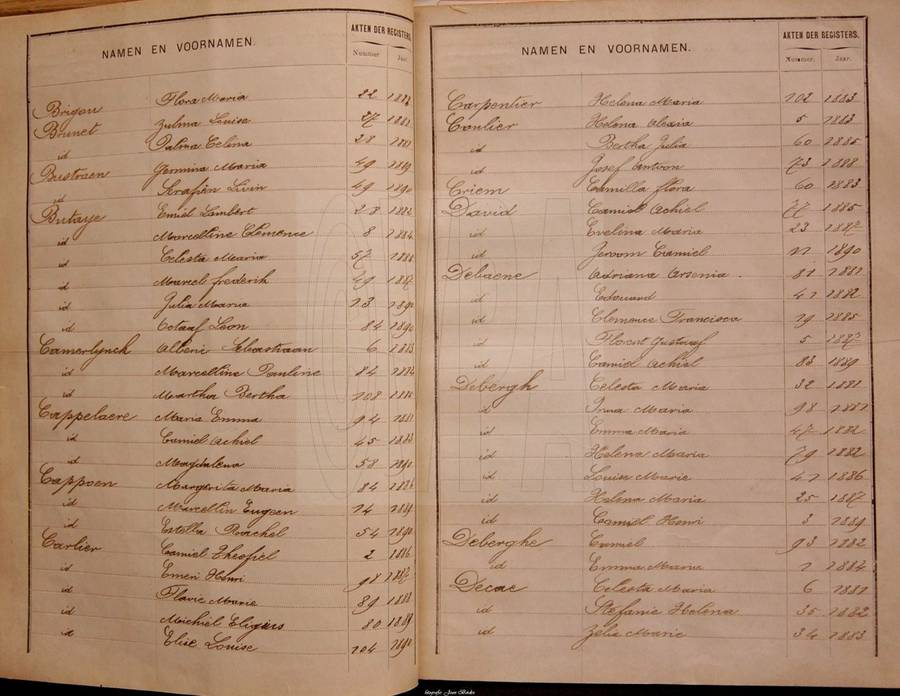 NAMEN EN VOORNAMEN.
AKTEN DER REGISTERS.
Nummer. Jaar.
Brigou Flora Maria 22
Brunet Zulma Louise 27
id Palma Celina 28
Bustraen Germina Maria 49
id Serafien Livin 49 1890
Butaye Emiel Lambert 28
id Marcelline Clemence 8 1884
id Celesta Maria 57
id Marcel frederik 49 1887
id Julia Maria 13 1890
id Octaaf Leon 84 1890
Camerlynck Alberic Sebastiaan 6
id Marcelline Pauline 84
id Martha Bertha 108
Cappelaere Maria Emma 94
id Camiel Achiel 45
id Magdalena 58 1890
Cappoen Margerita Maria 84
id Marcellin Eugeen 14
id Estella Rachel 54 1890
Carlier Camiel Theofiel 2 1886
id Emeri Henri 98 1887
id Flavie Marie 89 1888
id Michiel Eligius 80 1889
id Elise Louise 104 1890
NAMEN EN VOORNAMEN.
AKTEN DER REGISTERS.
Nummer. Jaar.
Carpentier Helena Maria 102 1883
Coulier Helena 5 1883
id Bertha Julia 60 1885
id Josef Antoon 73 1888
Criem Camilla flora 60 1883
David Camiel Achiel 77 1885
id Evelina Maria 23 1887
id Jeroom Camiel 11 1890
Debaene Adriana Arsenia 81 1881
id Edouard 41 1882
id Clemence Francisca 19 1885
id Florent Gustaaf 5 1887
id Camiel Achiel 83 1889
Debergh Celesta Maria 32 1881
id Irma Maria 98 1881
id Emma Maria 47 1882
id Helena Maria 79 1882
id Louise Marie 41 1886
id Helena Maria 25 1887
id Camiel Henri 3 1889
Deberghe Camiel 93 1882
id Emma Maria 1 1884
Decae Celesta Maria 6 1881
id Stefanie Helena 35 1882
id Zelie Marie 34 1883